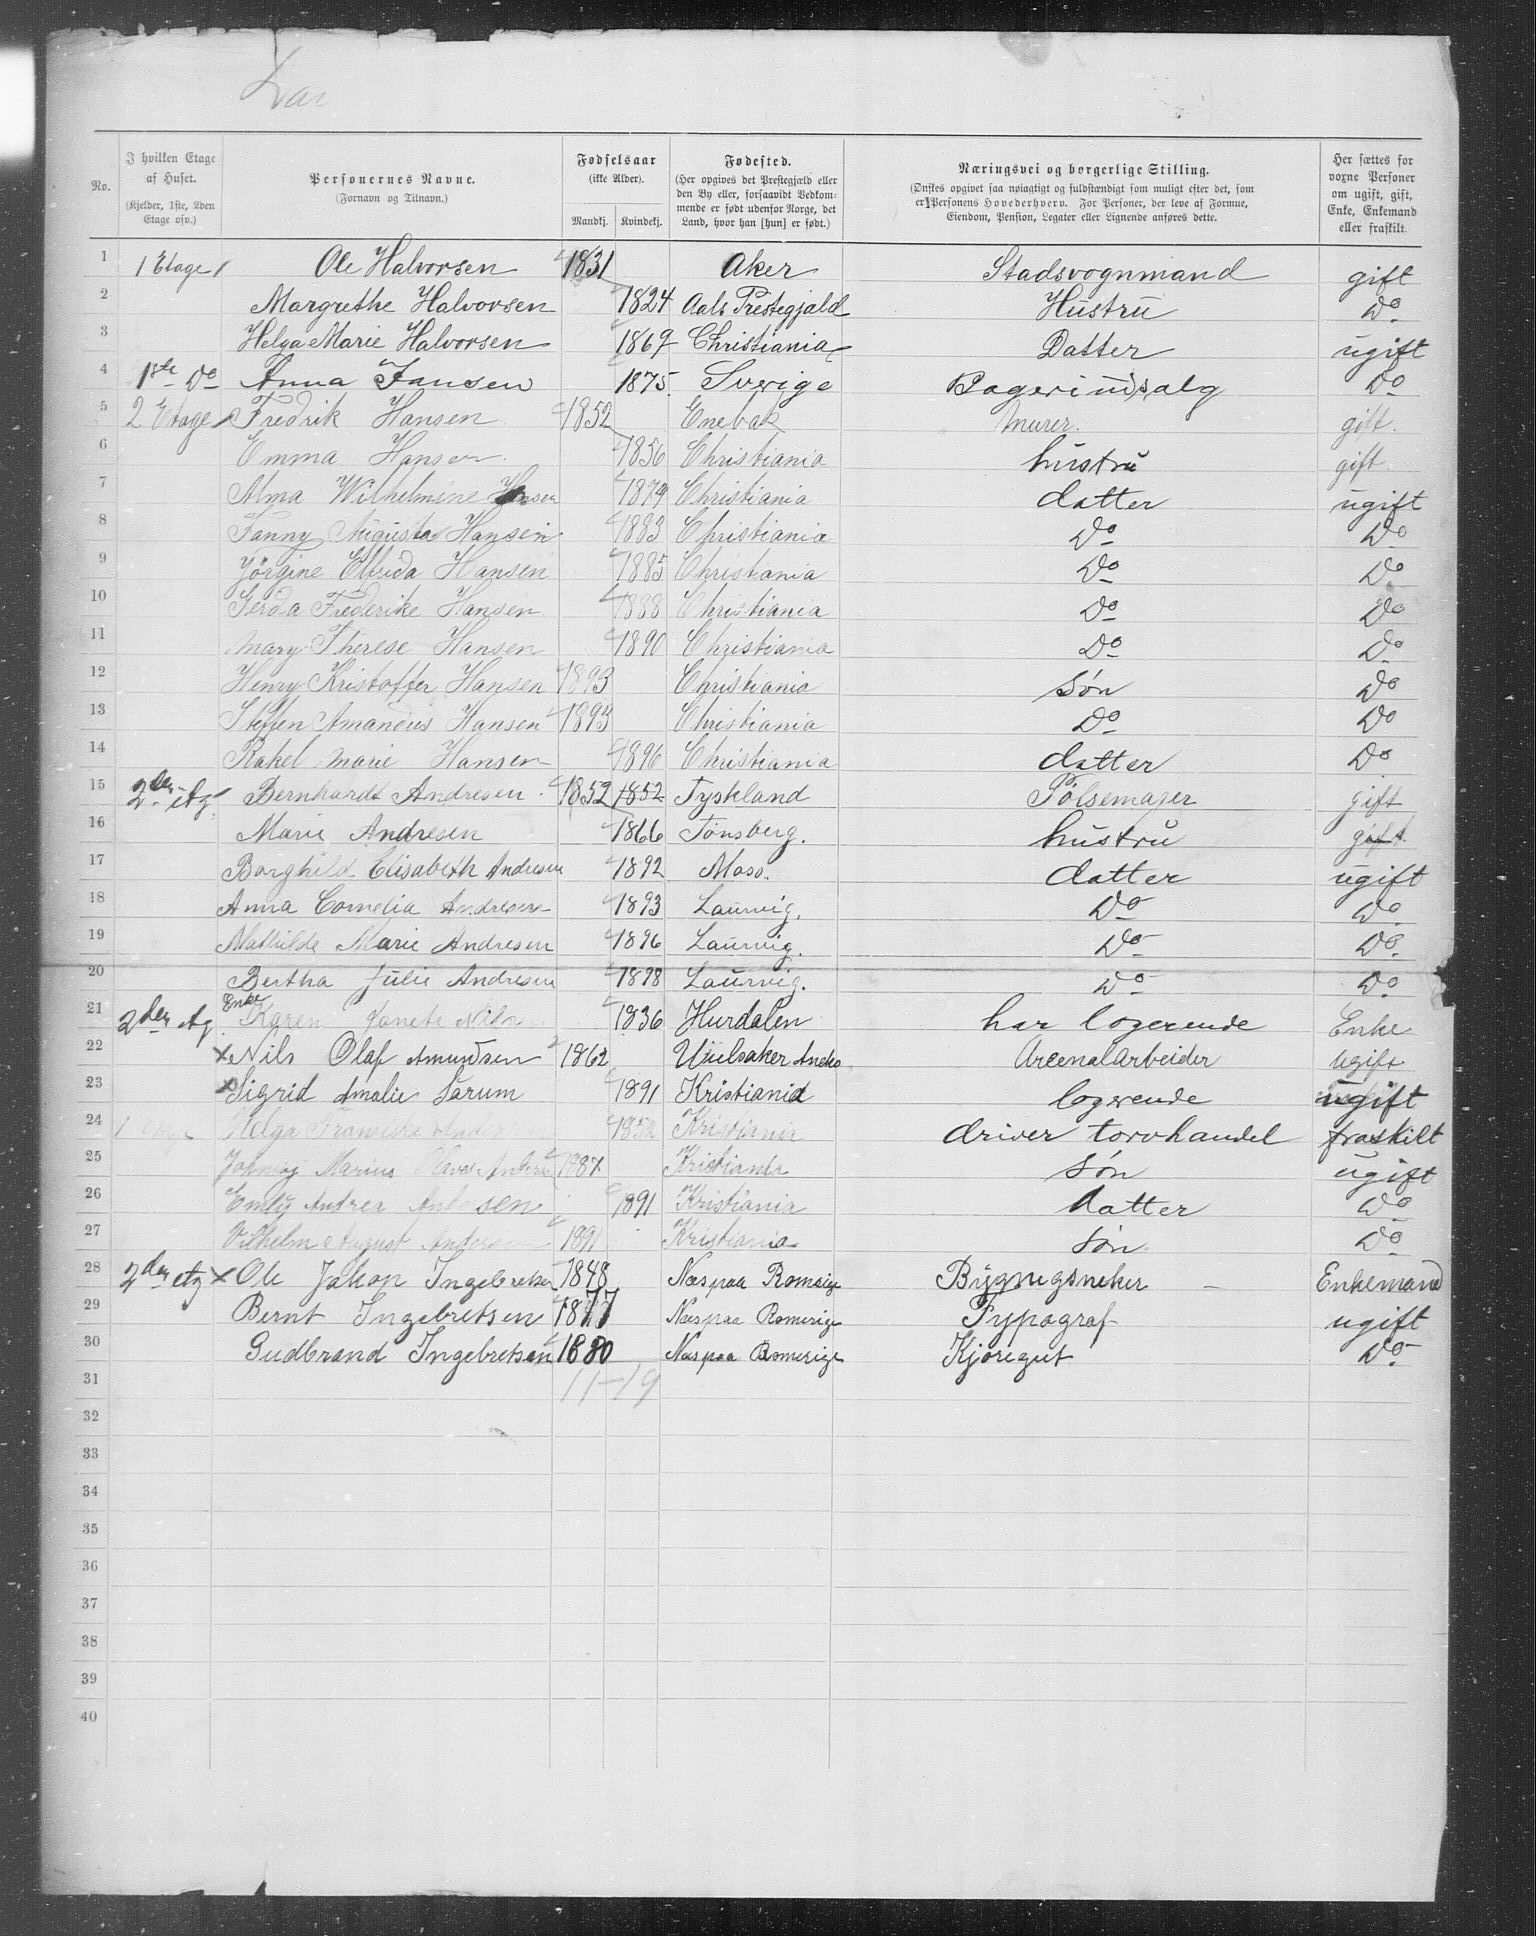 No.
I hvilken Etage af Huset. (Kjelder, 1ste, 2den Etage osv.)
Personernes Navne. (Fornavn og Tilnavn.)
Fødselsaar (ikke Alder). Mandkj. Kvindekj.
Fødested. (Her opgives det Prestegjæld eller den By eller, forsaavidt Vedkommende er født udenfor Norge, det Land, hvor han [hun] er født.)
Næringsvei og borgerlige Stilling. (Ønskes opgivet saa nøiagtigt og fuldstændigt som muligt efter det, som er Personens Hovederhverv. For Personer, der leve af Formue, Eiendom, Pension, Legater eller Lignende anføres dette.
Her sættes for voxne Personer om ugift, gift, Enke, Enkemand eller fraskilt.
1 1 Etage Ole Halvorsen 1831 Aker Stadsvognmand gift
2 Margrethe Halvorsen 1824 Aals Prestegjald Hustru Do
3 Helga Marie Halvorsen 1867 Christiania Datter ugift
4 1ste Do Anna Jansen 1875 Sverige Do
5 2 Etage Fredrik Hansen 1852 Enebak Murer. gift.
6 Emma Hansen 1856 Christiania hustru gift
7 Alma Wilhelmine Hansen 1879 Christiania datter ugift
8 Fanny Augusta Hansen 1883 Christiania Do Do
9 Jörgine Elfrida Hansen 1885 Christiania Do Do
10 Gerda Frederike Hansen 1888 Christiania Do Do
11 Mary Therese Hansen 1890 Christiania Do Do
12 Henry Kristoffer Hansen 1893 Christiania Søn Do
13 Steffen Amandus Hansen 1893 Christiania Do Do
14 Rakel Marie Hansen 1896 Christiania datter Do
15 2den Etg. Bernhardt Andresen 1852 1852 Tyskland Pölsemager gift
16 Marie Andresen 1866 Tönsberg. hustru gift
17 Borghild Elisabeth Andresen 1892 Moss. datter ugift
18 Anna Cornelia Andresen 1893 Laurvig. Do Do
19 Mathilde Marie Andresen 1896 Laurvig. Do Do
20 Bertha Julie Andresen 1898 Laurvig. Do Do
21 2den Etg Enke Karen 1836 Hurdalen har logerende Enke
22 Nils Olaf Amundsen 1862 Arcenalarbeider ugift
23 Sigrid Amalie Sørum 1891 Kristiania logerende ugift
24 Helga Kristiania driver torvhandel fraskilt
25 Marius 1887 Kristiania søn ugift
26 Emly Andrea 1891 Kristiania datter Do
27 Vilhelm August Andersen 1891 Kristiania søn Do
28 2den etg Ole Jakop Ingebretsen 1848 Næs paa Romerige Enkemand
29 Bernt Ingebretsen 1877 Næs paa Romerige Typograf ugift
30 Gudbrand Ingebretsen 1880 Næs paa Romerige Kjöregut Do
31 11-19
32
33
34
35
36
37
38
39
40